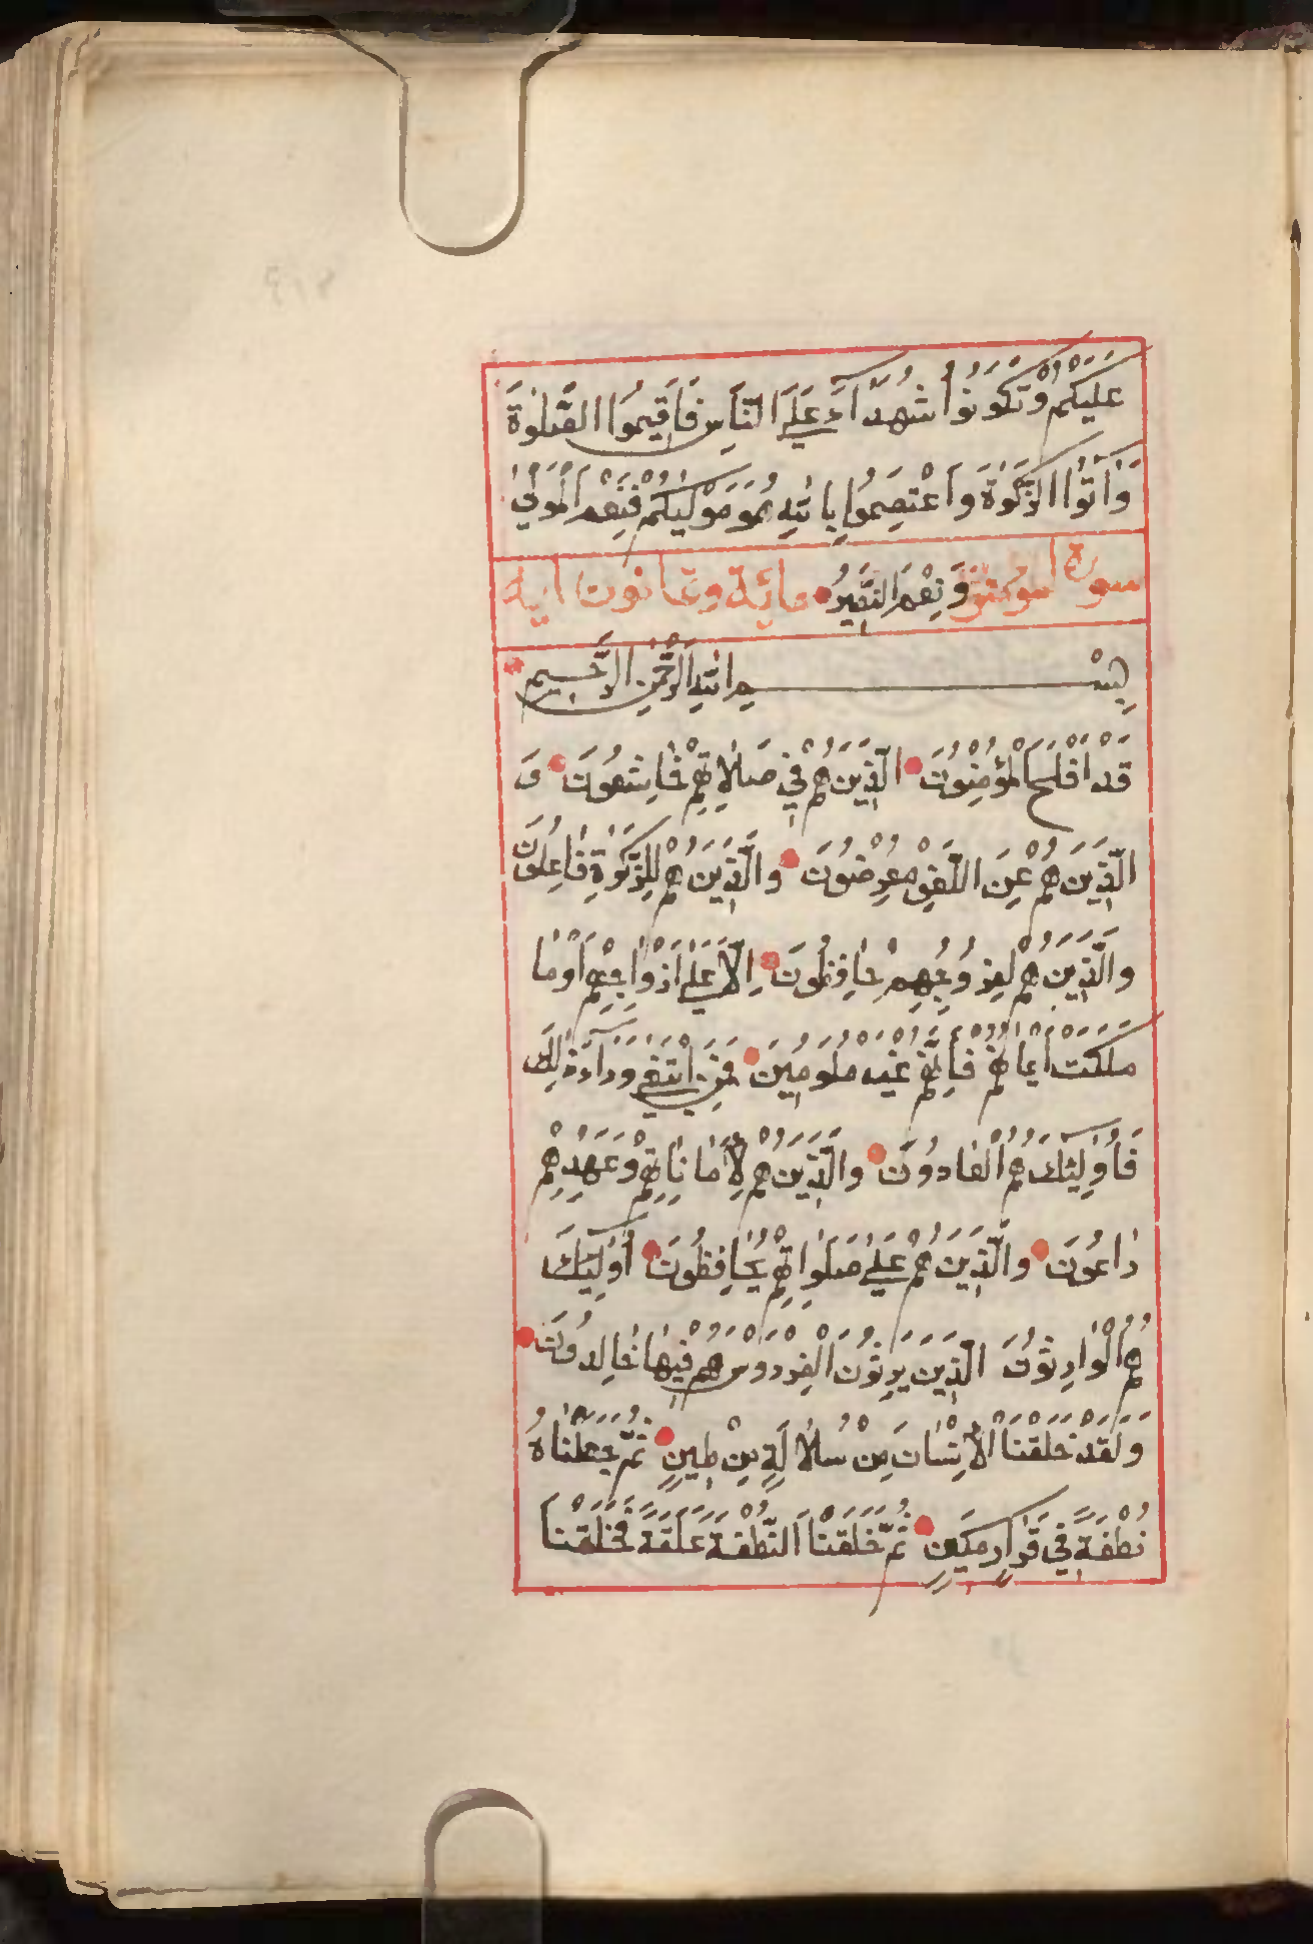 عَلَيْكُمْ وَتَكُونُوا شُهَدَآءَ عَلَى النَّاسِ فَاَقِيمُوا الصَّلٰوةَ
وَاٰتُوا الزَّكٰوةَ وَاعْتَصِمُوا بِاللّٰهِ هُوَ مَوْلٰيكُمْ فَنِعْمَ الْمَوْلٰى
سورة المومنون وَنِعْمَ النَّصِيرُ مائة وثمانون اية
بِسْمِ اللّٰهِ الرَّحْمٰنِ الرَّحِيمِ
قَدْ اَفْلَحَ الْمُؤْمِنُونَ الَّذِينَ هُمْ فِي صَلَاتِهِمْ خَاشِعُونَ وَ
الَّذِينَ هُمْ عَنِ اللَّغْوِ مُعْرِضُونَ وَالَّذِينَ هُمْ لِلزَّكٰوةِ فَاعِلُونَ
وَالَّذِينَ هُمْ لِفُرُوجِهِمْ حَافِظُونَ اِلَّا عَلٰى اَزْوَاجِهِمْ اَوْ مَا
مَلَكَتْ اَيْمَانُهُمْ فَاِنَّهُمْ غَيْرُ مَلُومِينَ فَمَنِ ابْتَغٰى وَرَآءَ ذٰلِكَ
فَاُولٰئِكَ هُمُ الْعَادُونَ وَالَّذِينَ هُمْ لِاَمَانَاتِهِمْ وَعَهْدِهِمْ
رَاعُونَ وَالَّذِينَ هُمْ عَلٰى صَلَوَاتِهِمْ يُحَافِظُونَ اُولٰئِكَ
هُمُ الْوَارِثُونَ الَّذِينَ يَرِثُونَ الْفِرْدَوْسَ هُمْ فِيهَا خَالِدُونَ
وَلَقَدْ خَلَقْنَا الْاِنْسَانَ مِنْ سُلَالَةٍ مِنْ طِينٍ ثُمَّ جَعَلْنَاهُ
نُطْفَةً فِي قَرَارٍ مَكِينٍ ثُمَّ خَلَقْنَا النُّطْفَةَ عَلَقَةً فَخَلَقْنَا